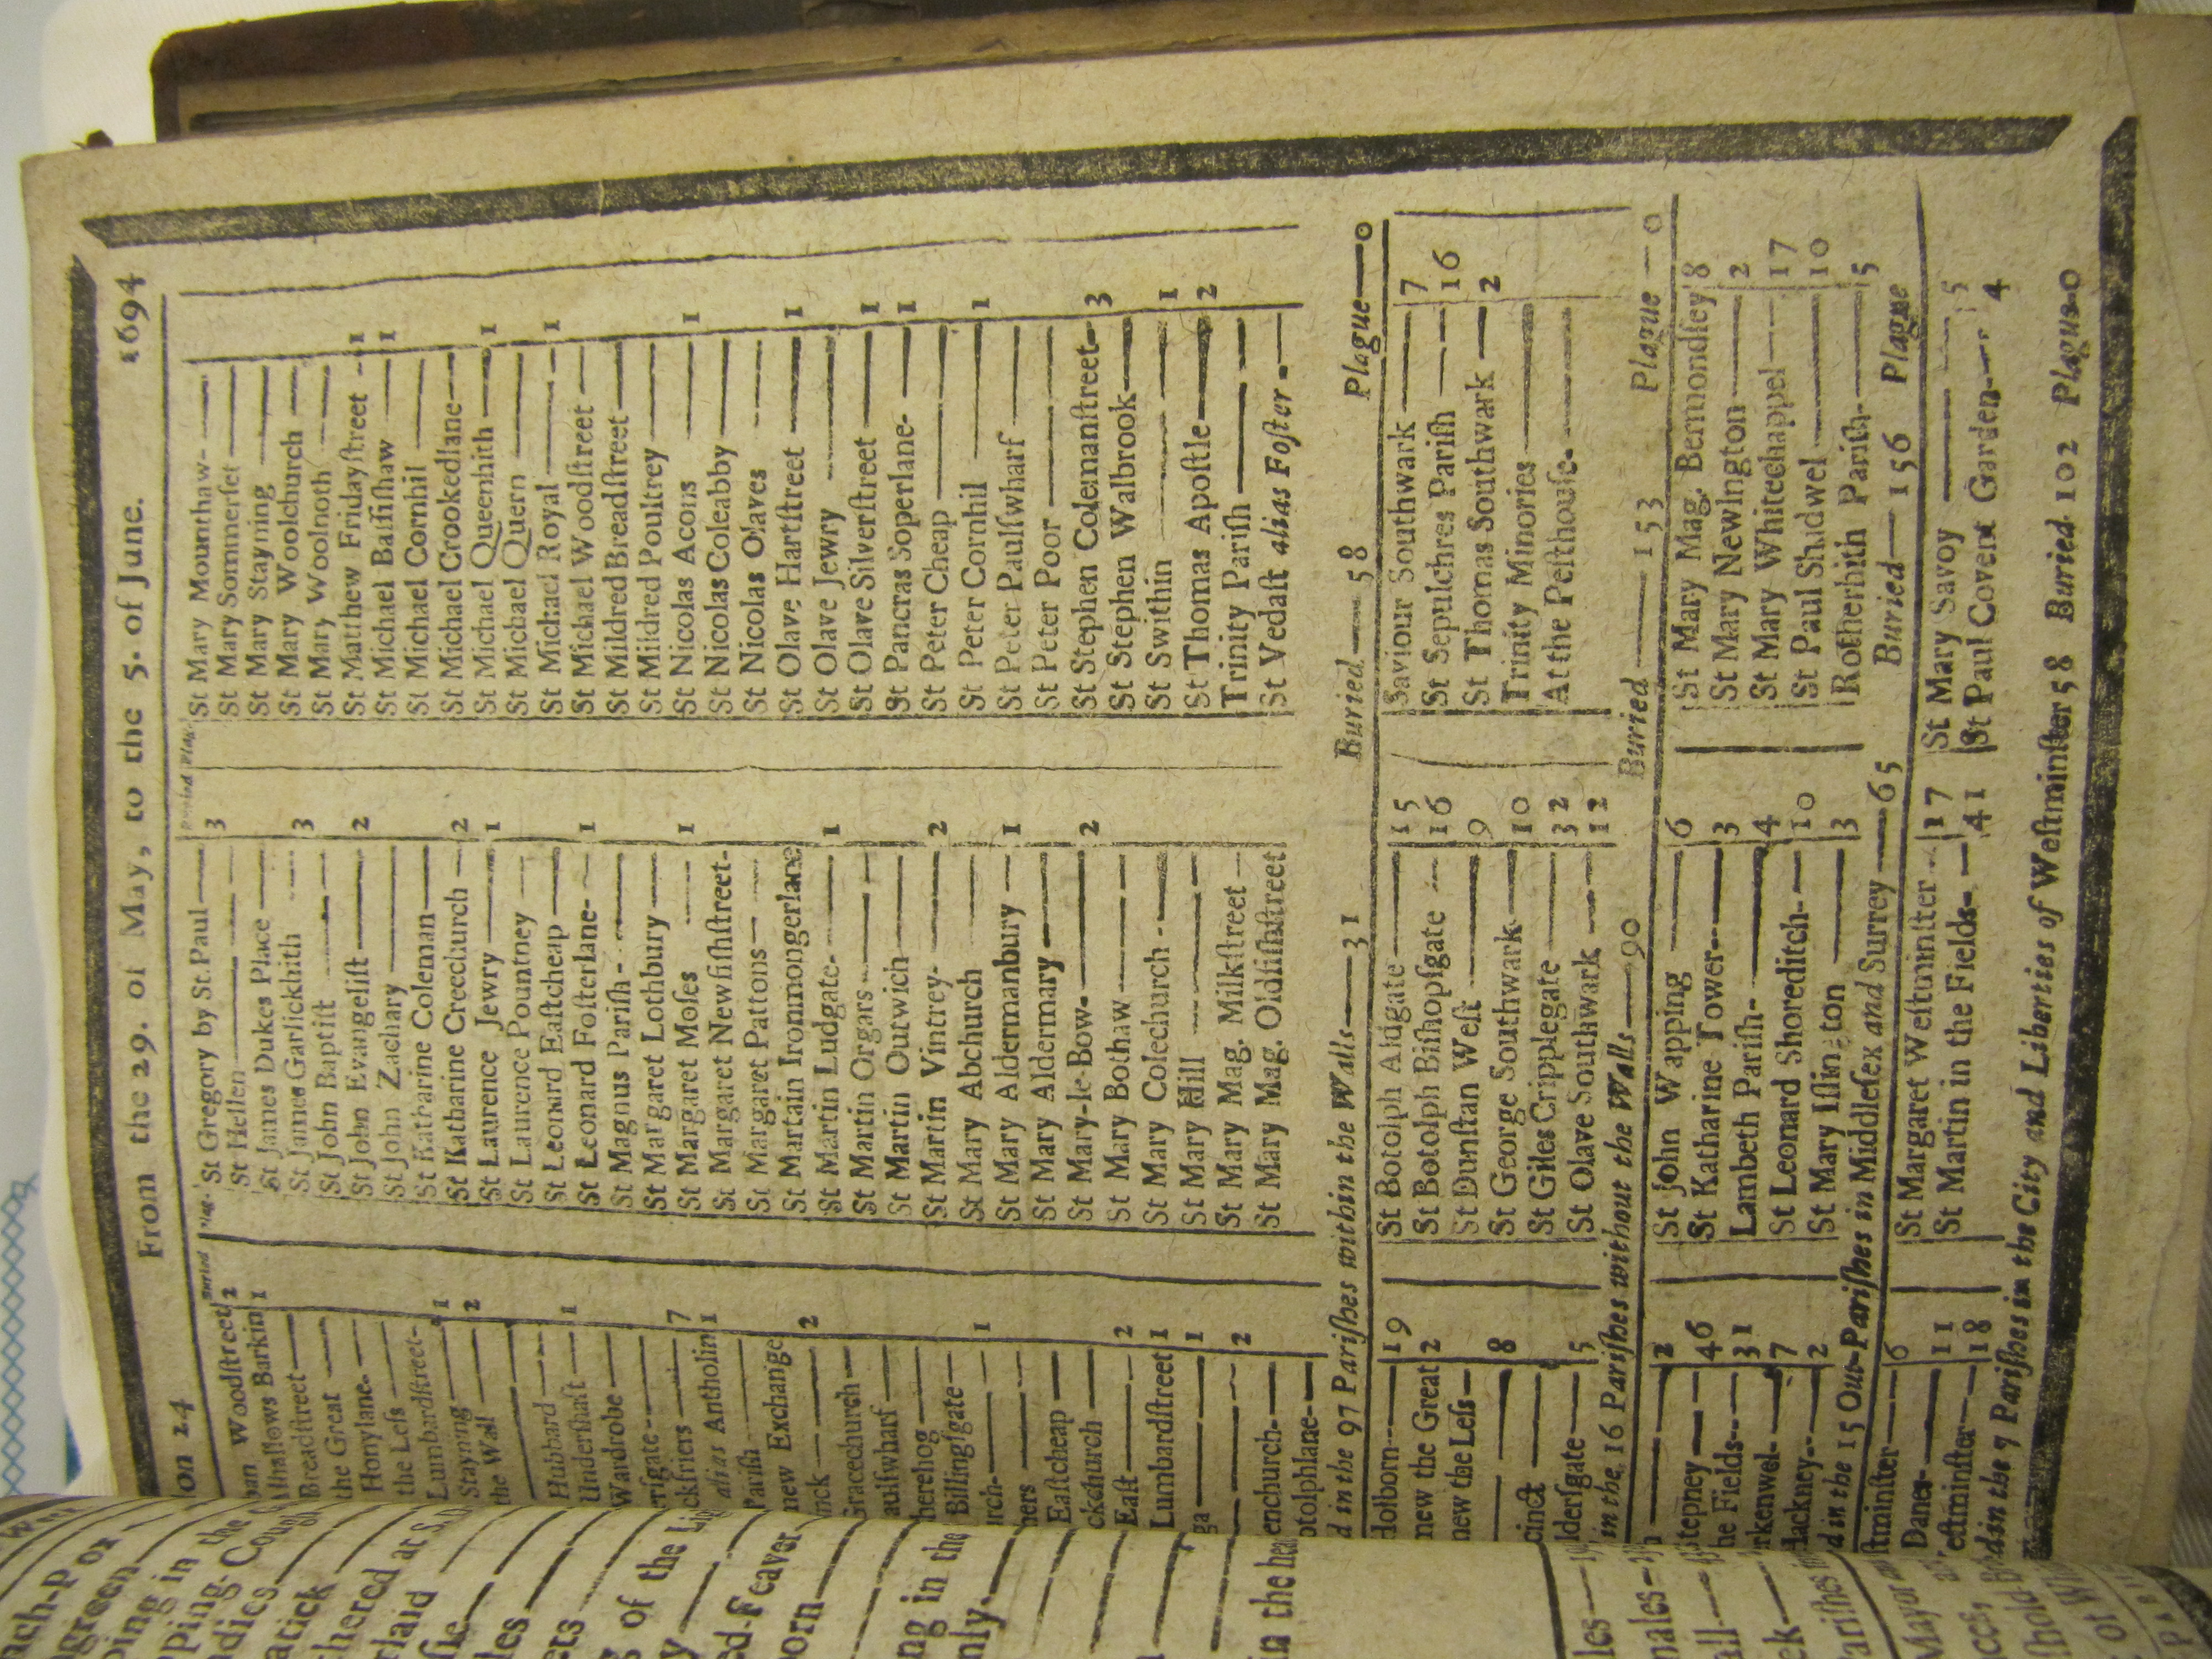 on 24 From the 29. of May, to the 5. of June. 1694
Woodſtreet 2
Alhallows Barkin 1
Breadſtreet
the Great
Honylane
the Leſs
Lumbardſtreet 1
Stayning 2
the Wall
Hubbard
Underſhaft 1
Wardrobe
erſgate
ckfriers 7
alias Antholin 1
Pariſh
new Exchange
inck 2
Gracechurch
aulſwharf
herehog
Billingſgate
urch 1
hers
Eaſtcheap
ckchurch
Eaſt 2
Lumbardſtreet 1
ga 1
2
enchurch
otolphlane
Buried Plag.
St Gregory by St. Paul 3
St Hellen
St James Dukes Place
St James Garlickhith 3
St John Baptiſt
St John Evangeliſt 2
St John Zachary
St Katharine Coleman
St Katharine Creechurch 2
St Laurence Jewry 1
St Laurence Pountney
St Leonard Eaſtcheap
St Leonard Foſterlane 1
St Magnus Pariſh
St Margaret Lothbury
St Margaret Moſes 1
St Margaret Newfiſhſtreet
St Margaret Pattons
St Martain Ironmongerlane
St Martin Ludgate 1
St Martin Orgars
St Martin Outwich
St Martin Vintrey 2
St Mary Abchurch
St Mary Aldermanbury 1
St Mary Aldermary
St Mary-le-Bow 2
St Mary Bothaw
St Mary Colechurch
St Mary Hill
St Mary Mag. Milkſtreet
St Mary Mag. Oldfiſhſtreet
Buried Plag.
St Mary Mounthaw
St Mary Sommerſet
St Mary Stayning
St Mary Woolchurch
St Mary Woolnoth
St Matthew Fridayſtreet 1
St Michael Baſſiſhaw 1
St Michael Cornhil
St Michael Crookedlane
St Michael Queenhith 1
St Michael Quern
St Michael Royal 1
St Michael Woodſtreet
St Mildred Breadſtreet
St Mildred Poultrey
St Nicolas Acons 1
St Nicolas Coleabby
St Nicolas Olaves
St Olave Hartſtreet 1
St Olave Jewry
St Olave Silverſtreet 1
St Pancras Soperlane 1
St Peter Cheap
St Peter Cornhil 1
St Peter Paulſwharf
St Peter Poor
St Stephen Colemanſtreet 3
St Stephen Walbrook
St Swithin 1
St Thomas Apoſtle 2
Trinity Pariſh
St Vedaſt alias Foſter
d in the 97 Pariſhes within the Walls — 31 Buried — 58 Plague — 0
Holborn 19
new the Great 2
new the Leſs
8
cinct
lderſgate 5
St Botolph Aldgate 15
St Botolph Biſhopſgate 16
St Dunſtan Weſt 9
St George Southwark 10
St Giles Cripplegate 32
St Olave Southwark 12
Saviour Southwark 7
St Sepulchres Pariſh 16
St Thomas Southwark 2
Trinity Minories
At the Peſthouſe
in the 16 Pariſhes without the Walls — 90 Buried — 153 Plague — 0
2
tepney 46
he Fields 31
rkenwel 7
Hackney 2
St John Wapping 6
St Katharine Tower 3
Lambeth Pariſh 4
St Leonard Shoreditch 10
St Mary Iſlington 3
St Mary Mag. Bermondſey 8
St Mary Newington 2
St Mary Whitechappel 17
St Paul Shadwel 10
Rotherhith Pariſh 5
d in the 15 Out-Pariſhes in Middleſex and Surrey — 65 Buried — 156 Plague
ſtminſter 6
Danes 11
eſtminſter 18
St Margaret Weſtminſter 17
St Martin in the Fields 41
St Mary Savoy 5
St Paul Covent Garden 4
d in the 7 Pariſhes in the City and Liberties of Weſtminſter 58 Buried 102 Plague 0
ping in the
atick
thered at
rlaid
of the
ed-Feaver
orn
ng in the
nly
in the
nales